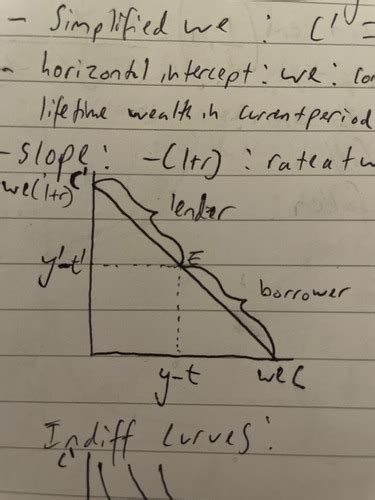 - Simplified we : C' =
- horizontal intercept : we : con
lifetime wealth in current period
- slope : -(1+r) : rate at w
C'
we(1+r)
lender
y'-t'
E
borrower
y-t
we C
Indiff curves :
C'